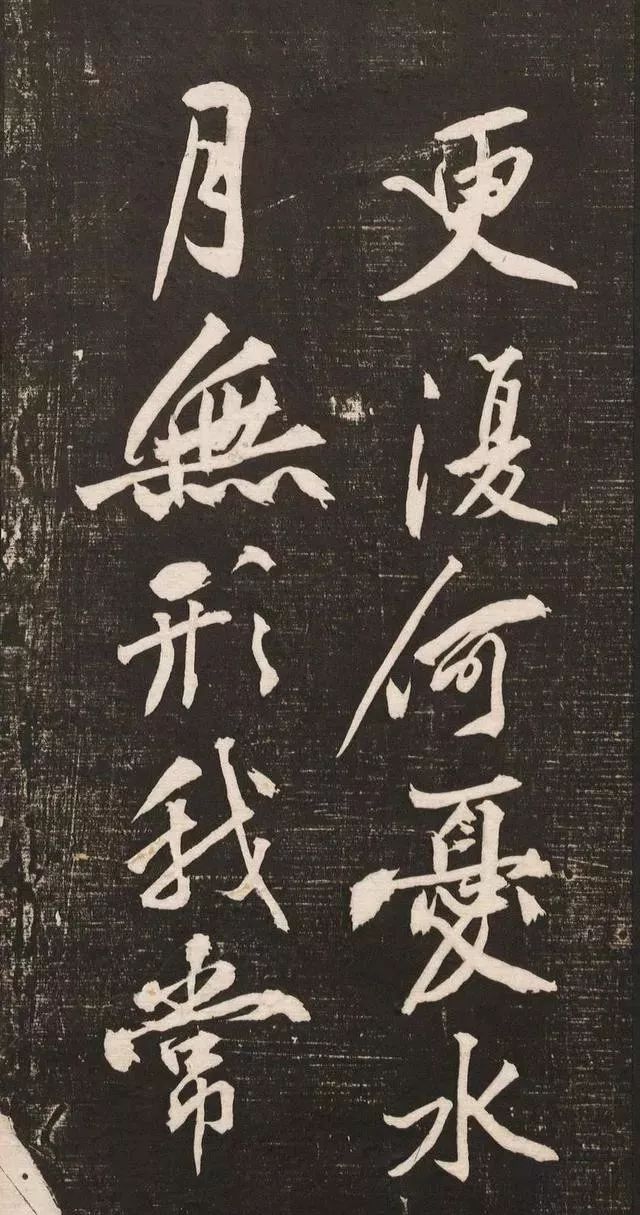 更復何憂水
月無形我常